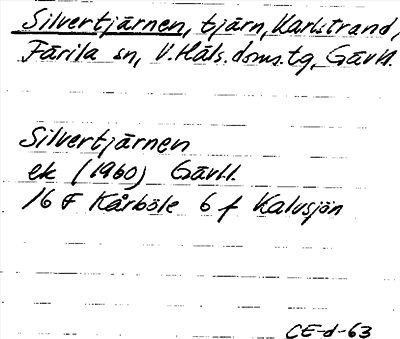 Silvertjärnen, tjärn, Karlstrand,
Färila sn, V. Häls. doms. tg, Gävl.
Silvertjärnen
ek (1960) Gävl.
16 F Kårböle 6 f Kalvsjön
CE-d-63